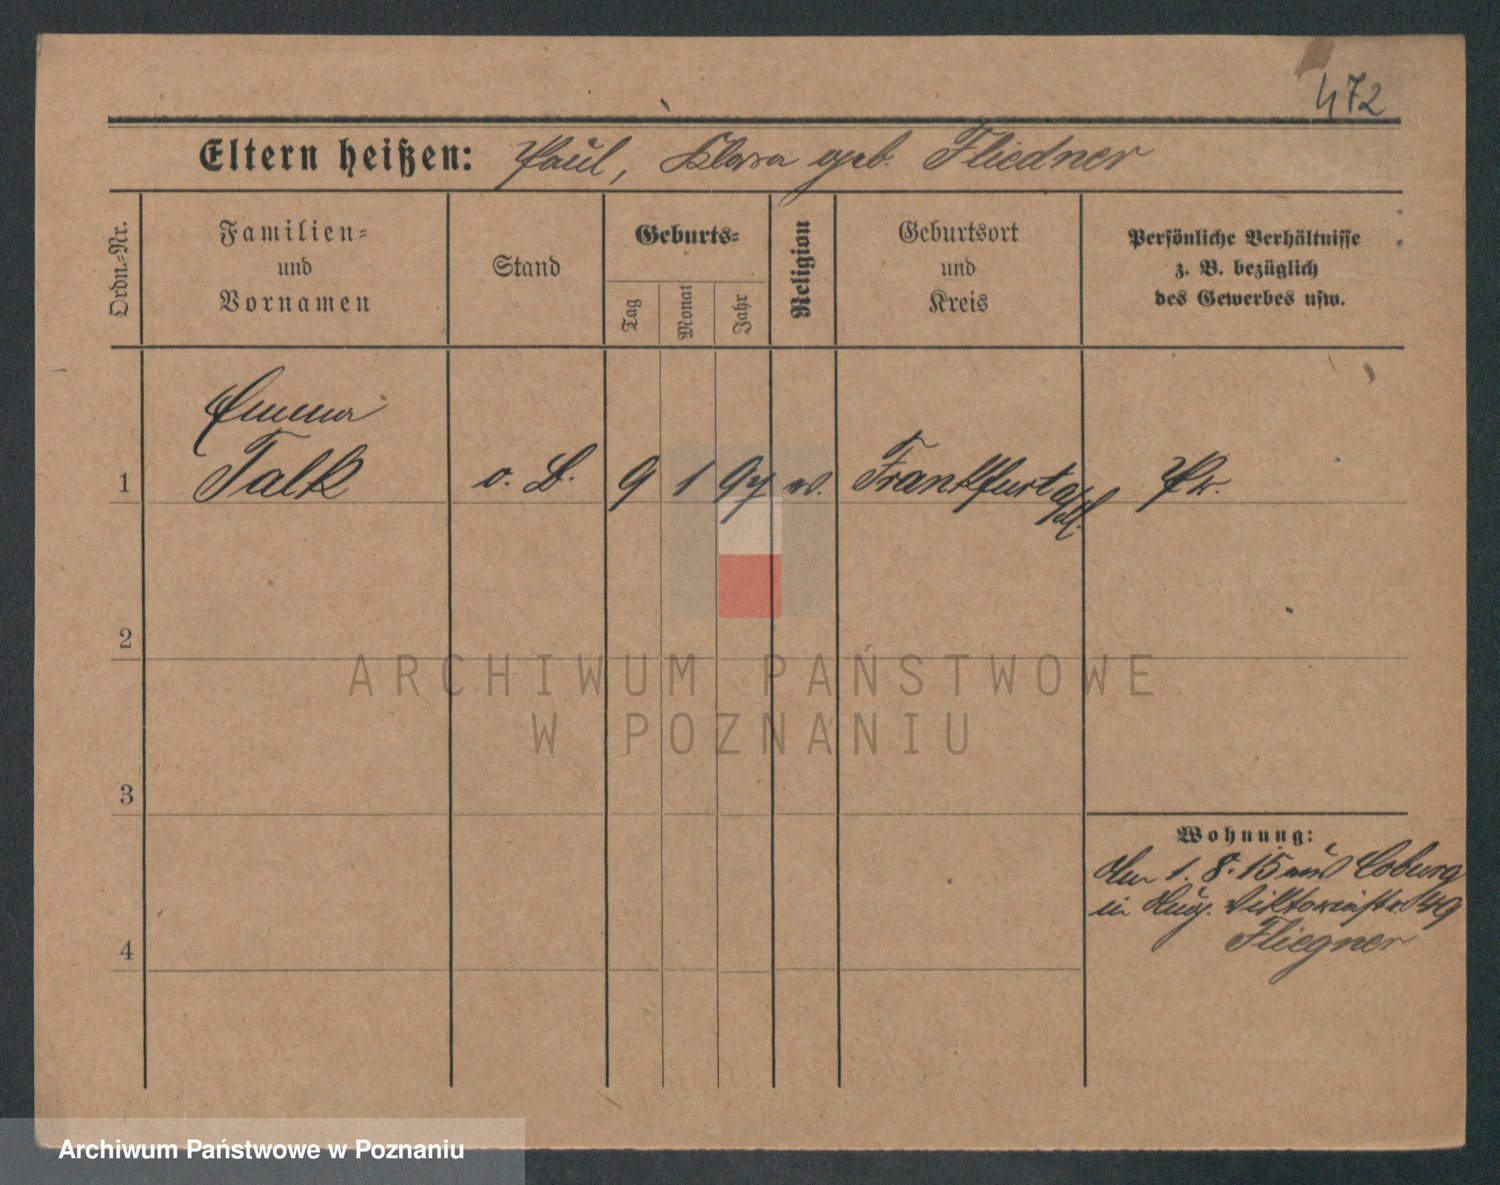 472
Eltern heißen: Paul, Klara geb. Fliedner
Ordn.-Nr.
Familien-
und
Vornamen
Stand
Geburts-
Tag
Monat
Jahr
Religion
Geburtsort
und
Kreis
Persönliche Verhältnisse
z. B. bezüglich
des Gewerbes usw.
Emma
1 Falk o. B. 9 1 97 Frankfurt a/M. Pr.
2
ARCHIWUM PAŃSTWOWE
W POZNANIU
3
Wohnung:
1. 8. 15 aus Coburg
in Aug. Viktoriastr. 49
Fliegner
4
Archiwum Państwowe w Poznaniu